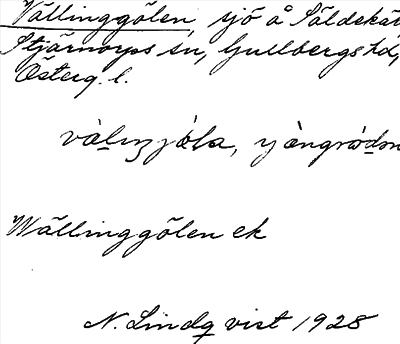 Vällinggölen, sjö å Säldekär
Stjärnorps sn, Gullbergs hd,
Österg. l.
Wällinggölen ek
N. Lindqvist 1928